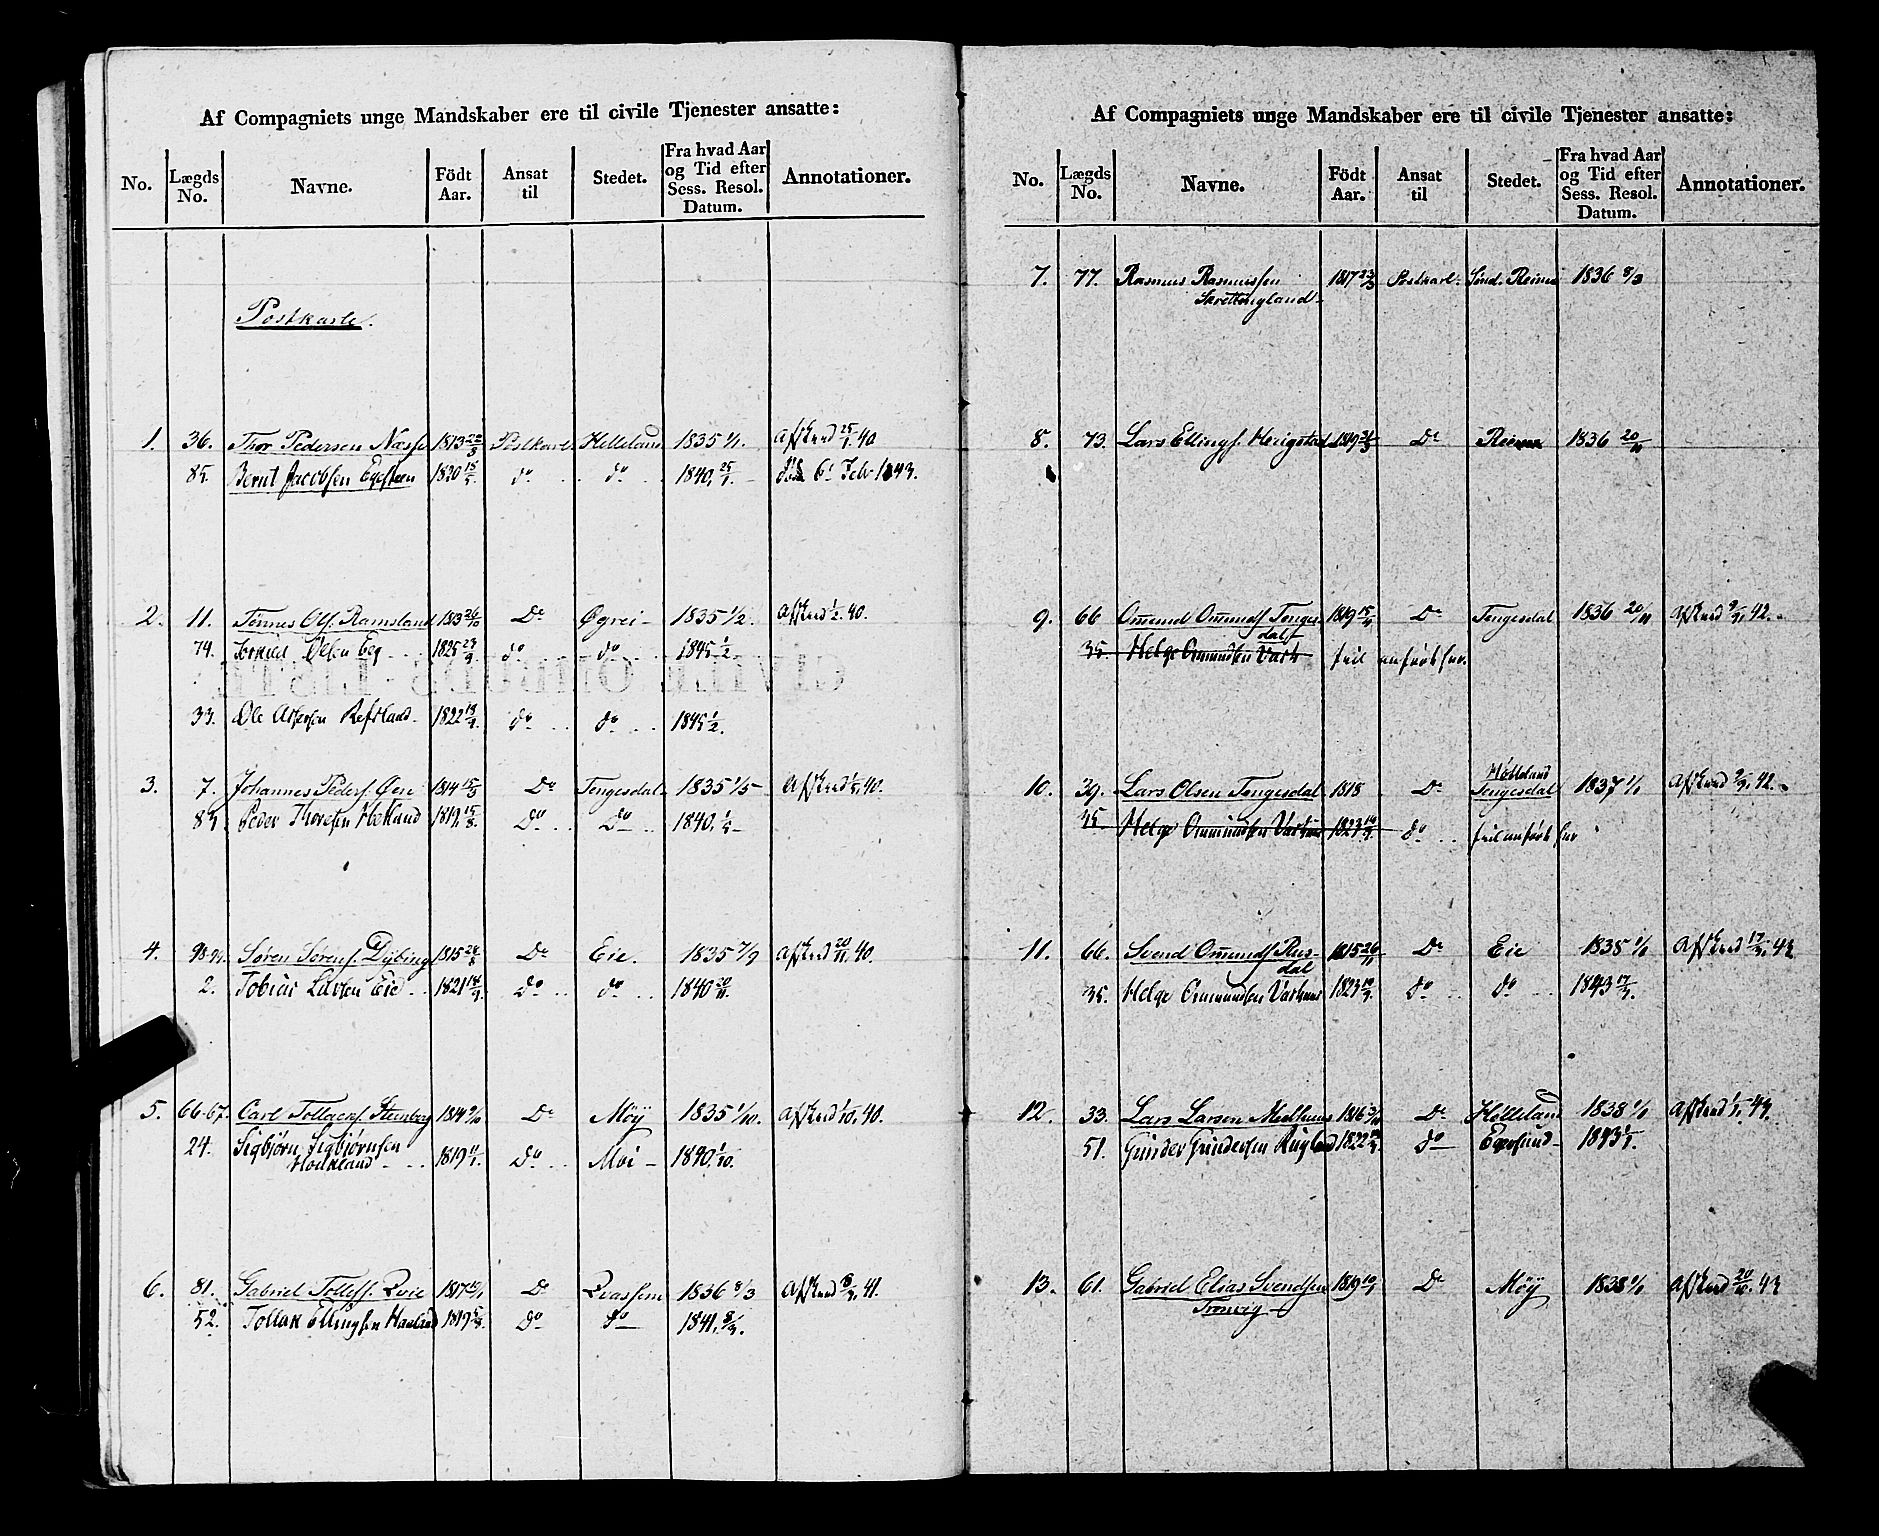 Af Compagniets unge Mandskaber ere til civile Tjenester ansatte:
No. Lægds No. Navne. Födt Aar. Ansat til Stedet. Fra hvad Aar og Tid efter Sess. Resol. Datum. Annotationer.
Postkarle.
1. 36. Thor Pedersen Næsse 1813 Postkarl Helleland 1835 1/1. Afskeed 25/1. 40
85. Bernt Jacobsen Egesteen 1820 15/5 do do 1840. 25/1. 6. Febr 1843.
2. 11. Tönnes Ols. Ramsland 1813 26/10 Do Øgrei 1835 1/2. Afskeed 1/2. 40.
74. Torkild Olsen Eeg 1825 23/9. do do 1845 1/2
CIVILE OMBUDS-LISTE
33. Ole Refsland 1822 18/9. do do 1845 1/2.
3. 7. Johannes Peders. Øen 1814 15/3 Do Tengesdal 1835 1/5 Afskeed 1/5. 40.
85. Peder Thoresen Hetland 1819. 15/3. Do Do 1840. 1/5
4. 98-99. Søren Sørens. Dybing 1815 Do Eie. 1835 7/9 Afskeed 20/11. 40.
2. Tobias Larsen Eie 1821 14/9. Do do 1840 20/11.
5. 66-67. Carl Tollacks. Steenberg 1814 9/10 Do Möÿ 1835 1/10. Afskeed 1/10. 40.
24. Sigbjörn Sigbjörnsen
1819 11/1. Do Moi 1840. 1/10.
6. 81. Gabriel Tollefs. Qvie 1817 Do Qvassem 1836 8/3 Afskeed 8/3. 41.
52. Tollak Ellingsen Haaland 1819 Do do 1841. 8/3.
Af Compagniets unge Mandskaber ere til civile Tjenester ansatte:
No. Lægds No. Navne. Födt Aar. Ansat til Stedet. Fra hvad Aar og Tid efter Sess. Resol. Datum. Annotationer.
7. 77. Rasmus Rasmussen 1817 23/3 Postkarl Sönd. Reime 1836 8/3
Skrettingland
8. 73. Lars Ellings. Herigstad 1819 Do Reime 1836 20/11
9. 66 Omund Omunds Tenges 1819 15/4 Do Tengesdal 1836 20/11 Afskeed 9/9. 42.
dal
35. Helge Omundsen feil anført her.
Hölleland
10. 39. Lars Olsen Tengesdal 1818 Do Tengesdal 1837 1/1 Afskeed 9/9. 42.
35 Helge Ommundsen 1823 19/9. do feil anført her
11. 66. Svend Omunds Rus- 1815 26/11 Do Eie 1838 1/1 Afskeed 17/9. 43
dal
35. Helge Ommundsen 1823 19/9. do do 1843 17/9.
12. 33. Lars Larsen Medhuus 1816 Do Hölleland 1838 1/1 Afskeed 1/1. 43.
51. Gunder Gundersen 1822 do Egersund 1843 1/1.
13. 61. Gabriel Elias Svendsen 1819 Do Möÿ 1838 1/1 Afskeed 20/10. 43
Tronvig